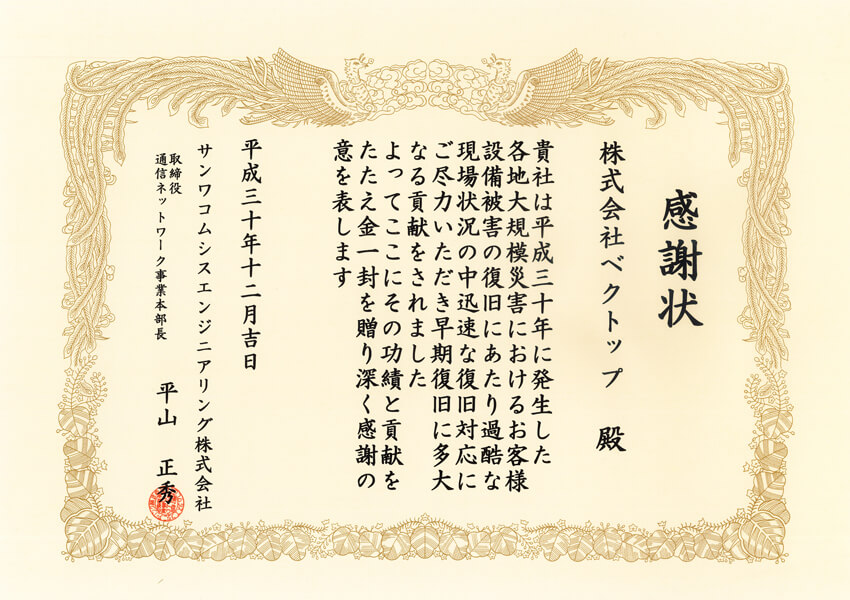 感謝状
株式会社ベクトップ 殿
貴社は平成三十年に発生した
各地大規模災害におけるお客様
設備被害の復旧にあたり過酷な
現場状況の中迅速な復旧対応に
ご尽力いただき早期復旧に多大
なる貢献をされました
よってここにその功績と貢献を
たたえ金一封を贈り深く感謝の
意を表します
平成三十年十二月吉日
サンワコムシスエンジニアリング株式会社
取締役
通信ネットワーク事業本部長
平山 正秀